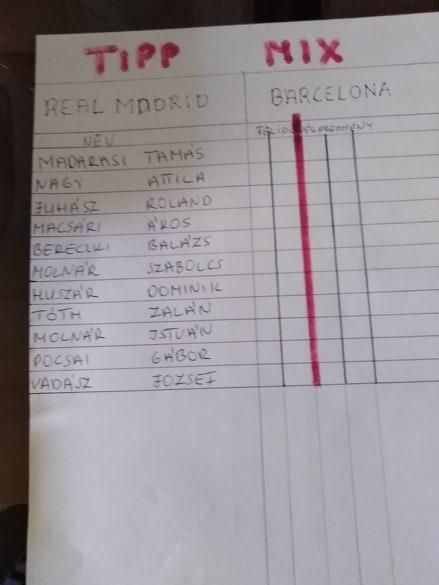 TIPP MIX
REAL MADRID BARCELONA
NÉV FÉLIDŐ VÉGEREDMÉNY
MADARASI TAMÁS
NAGY ATTILA
JUHÁSZ ROLAND
MACSÁRI ÁKOS
BERECZKI BALÁZS
MOLNÁR SZABOLCS
HUSZÁR DOMINIK
TÓTH ZALÁN
MOLNÁR ISTVÁN
POCSAI GÁBOR
VADÁSZ JOZSEF